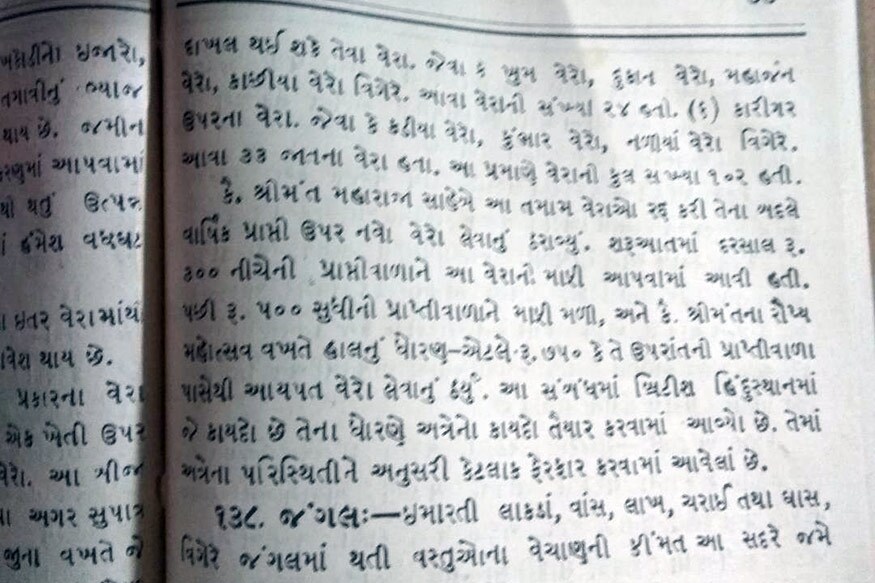 ઇજારો,
તગાવીનું વ્યાજ
થાય છે. જમીન
રણમાં આપવામાં
થતું ઉત્પન્ન
હંમેશ વધઘટ
ઇતર વેરામાંથી
વેશ થાય છે.
પ્રકારના વેરા
એક ખેતી ઉપર
વેરો. આ ત્રીજા
અગર સુપાત્ર
જુના વખતે જે
દાખલ થઈ શકે તેવા વેરા. જેવા કે ખુમ વેરો, દુકાન વેરો, મહાજન
વેરો, કાછીયા વેરો વિગેરે. આવા વેરાની સંખ્યા ૨૪ હતી. (૬) કારીગર
ઉપરના વેરા. જેવા કે કડીયા વેરો, કુંભાર વેરો, નળીયાં વેરો વિગેરે.
આવા ૩૩ જાતના વેરા હતા. આ પ્રમાણે વેરાની કુલ સંખ્યા ૧૦૨ હતી.
કૈ. શ્રીમંત મહારાજા સાહેબે આ તમામ વેરાઓ રદ્દ કરી તેના બદલે
વાર્ષિક પ્રાપ્તી ઉપર નવો વેરો લેવાનું ઠરાવ્યું. શરૂઆતમાં દરસાલ રૂ.
૩૦૦ નીચેની પ્રાપ્તીવાળાને આ વેરાની માફી આપવામાં આવી હતી.
પછી રૂ. ૫૦૦ સુધીની પ્રાપ્તીવાળાને માફી મળી, અને કૈ. શ્રીમંતના રૌપ્ય
મહોત્સવ વખતે હાલનું ધોરણ–એટલે રૂ. ૭૫૦ કે તે ઉપરાંતની પ્રાપ્તીવાળા
પાસેથી આયપત વેરો લેવાનું ઠર્યું. આ સંબંધમાં બ્રિટીશ હિંદુસ્થાનમાં
જે કાયદો છે તેના ધોરણે અત્રેનો કાયદો તૈયાર કરવામાં આવ્યો છે. તેમાં
અત્રેના પરિસ્થિતીને અનુસરી કેટલાક ફેરફાર કરવામાં આવેલાં છે.
૧૩૮. જંગલઃ—ઇમારતી લાકડાં, વાંસ, લાખ, ચરાઈ તથા ઘાસ,
વિગેરે જંગલમાં થતી વસ્તુઓના વેચાણની કીંમત આ સદરે જમે